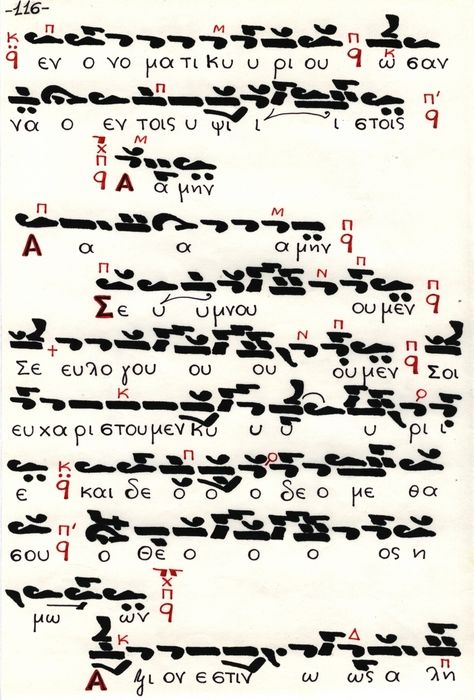 -116-
εν ο νο μα τι κυ υ ρι ου ω σαν
να ο εν τοις υ ψι ι ι στοις
Α α μην
Α α α α μην
Σε υ υμνου ου μεν
Σε ευ λο γου ου ου ου μεν Σοι
ευ χα ρι στου μεν κυ υ υ υ ρι ι
ε και δε ο ο ο δε ο με θα
σου ο Θε ο ο ο ος η
μω ων
Α ξι ον ε στιν ω ως α λη